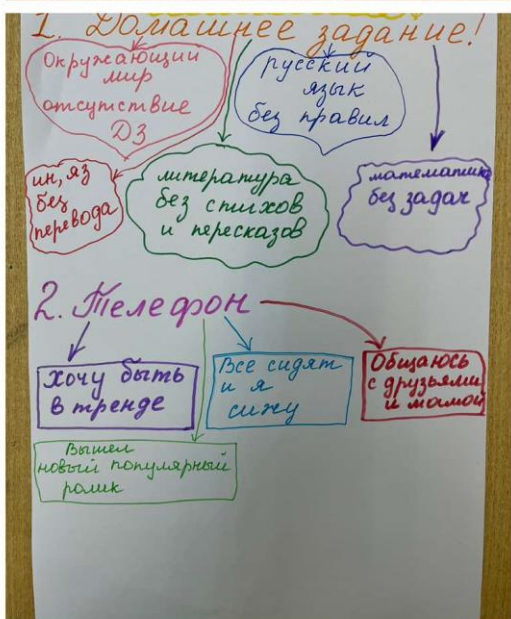 1. Домашнее задание!
Окружающий
мир
отсутствие
ДЗ
русский
язык
без правил
ин, яз
без
перевода
литература
без стихов
и пересказов
математика
без задач
2. Телефон
Хочу быть
в тренде
Все сидят
и я
сижу
Общаюсь
с друзьями
и мамой
Вышел
новый популярный
ролик